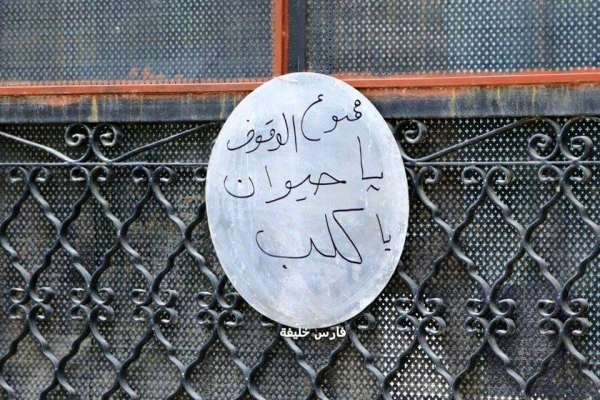 ممنوع الوقوف
يا حيوان
يا كلب
فارس خليفة